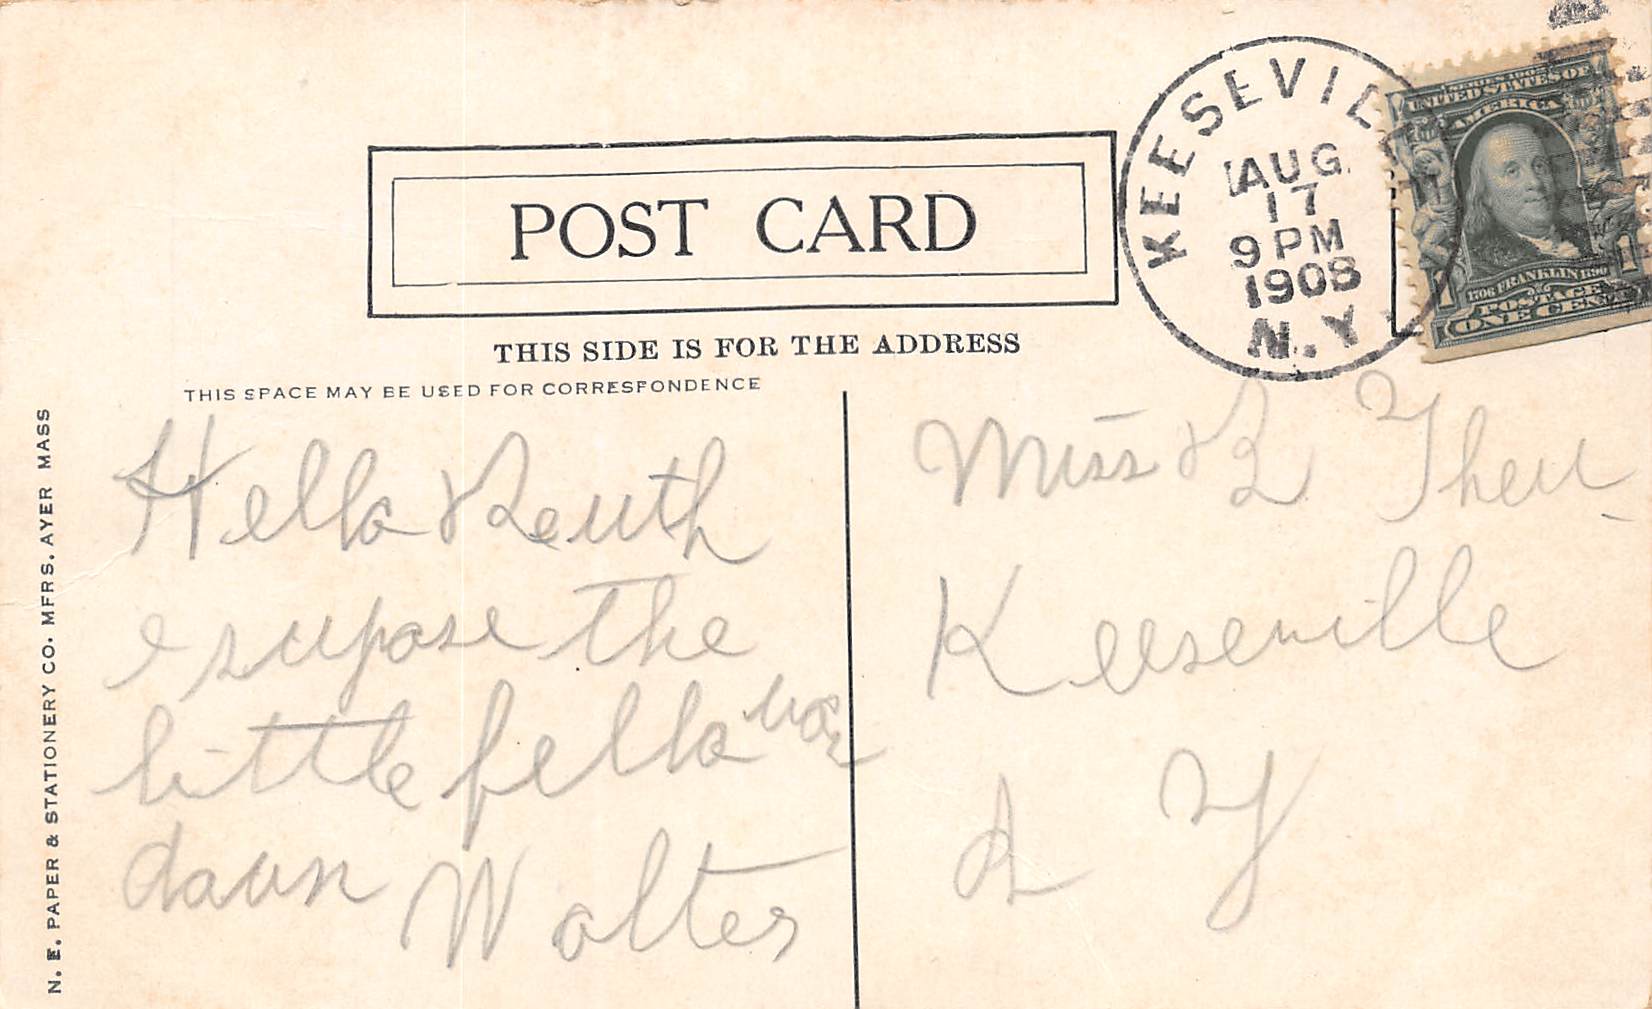 POST CARD
THIS SIDE IS FOR THE ADDRESS
THIS SPACE MAY BE USED FOR CORRESPONDENCE
N. E. PAPER & STATIONERY CO. MFRS. AYER MASS
KEESEVIL
AUG
17
9 PM
1908
N.Y.
SERIES 1902
UNITED STATES OF
AMERICA
1706 FRANKLIN 1790
POSTAGE
1 1
ONE CENT
Hello Reuth
I supose the
little fello
down Walter
Miss R
Keeseville
Y